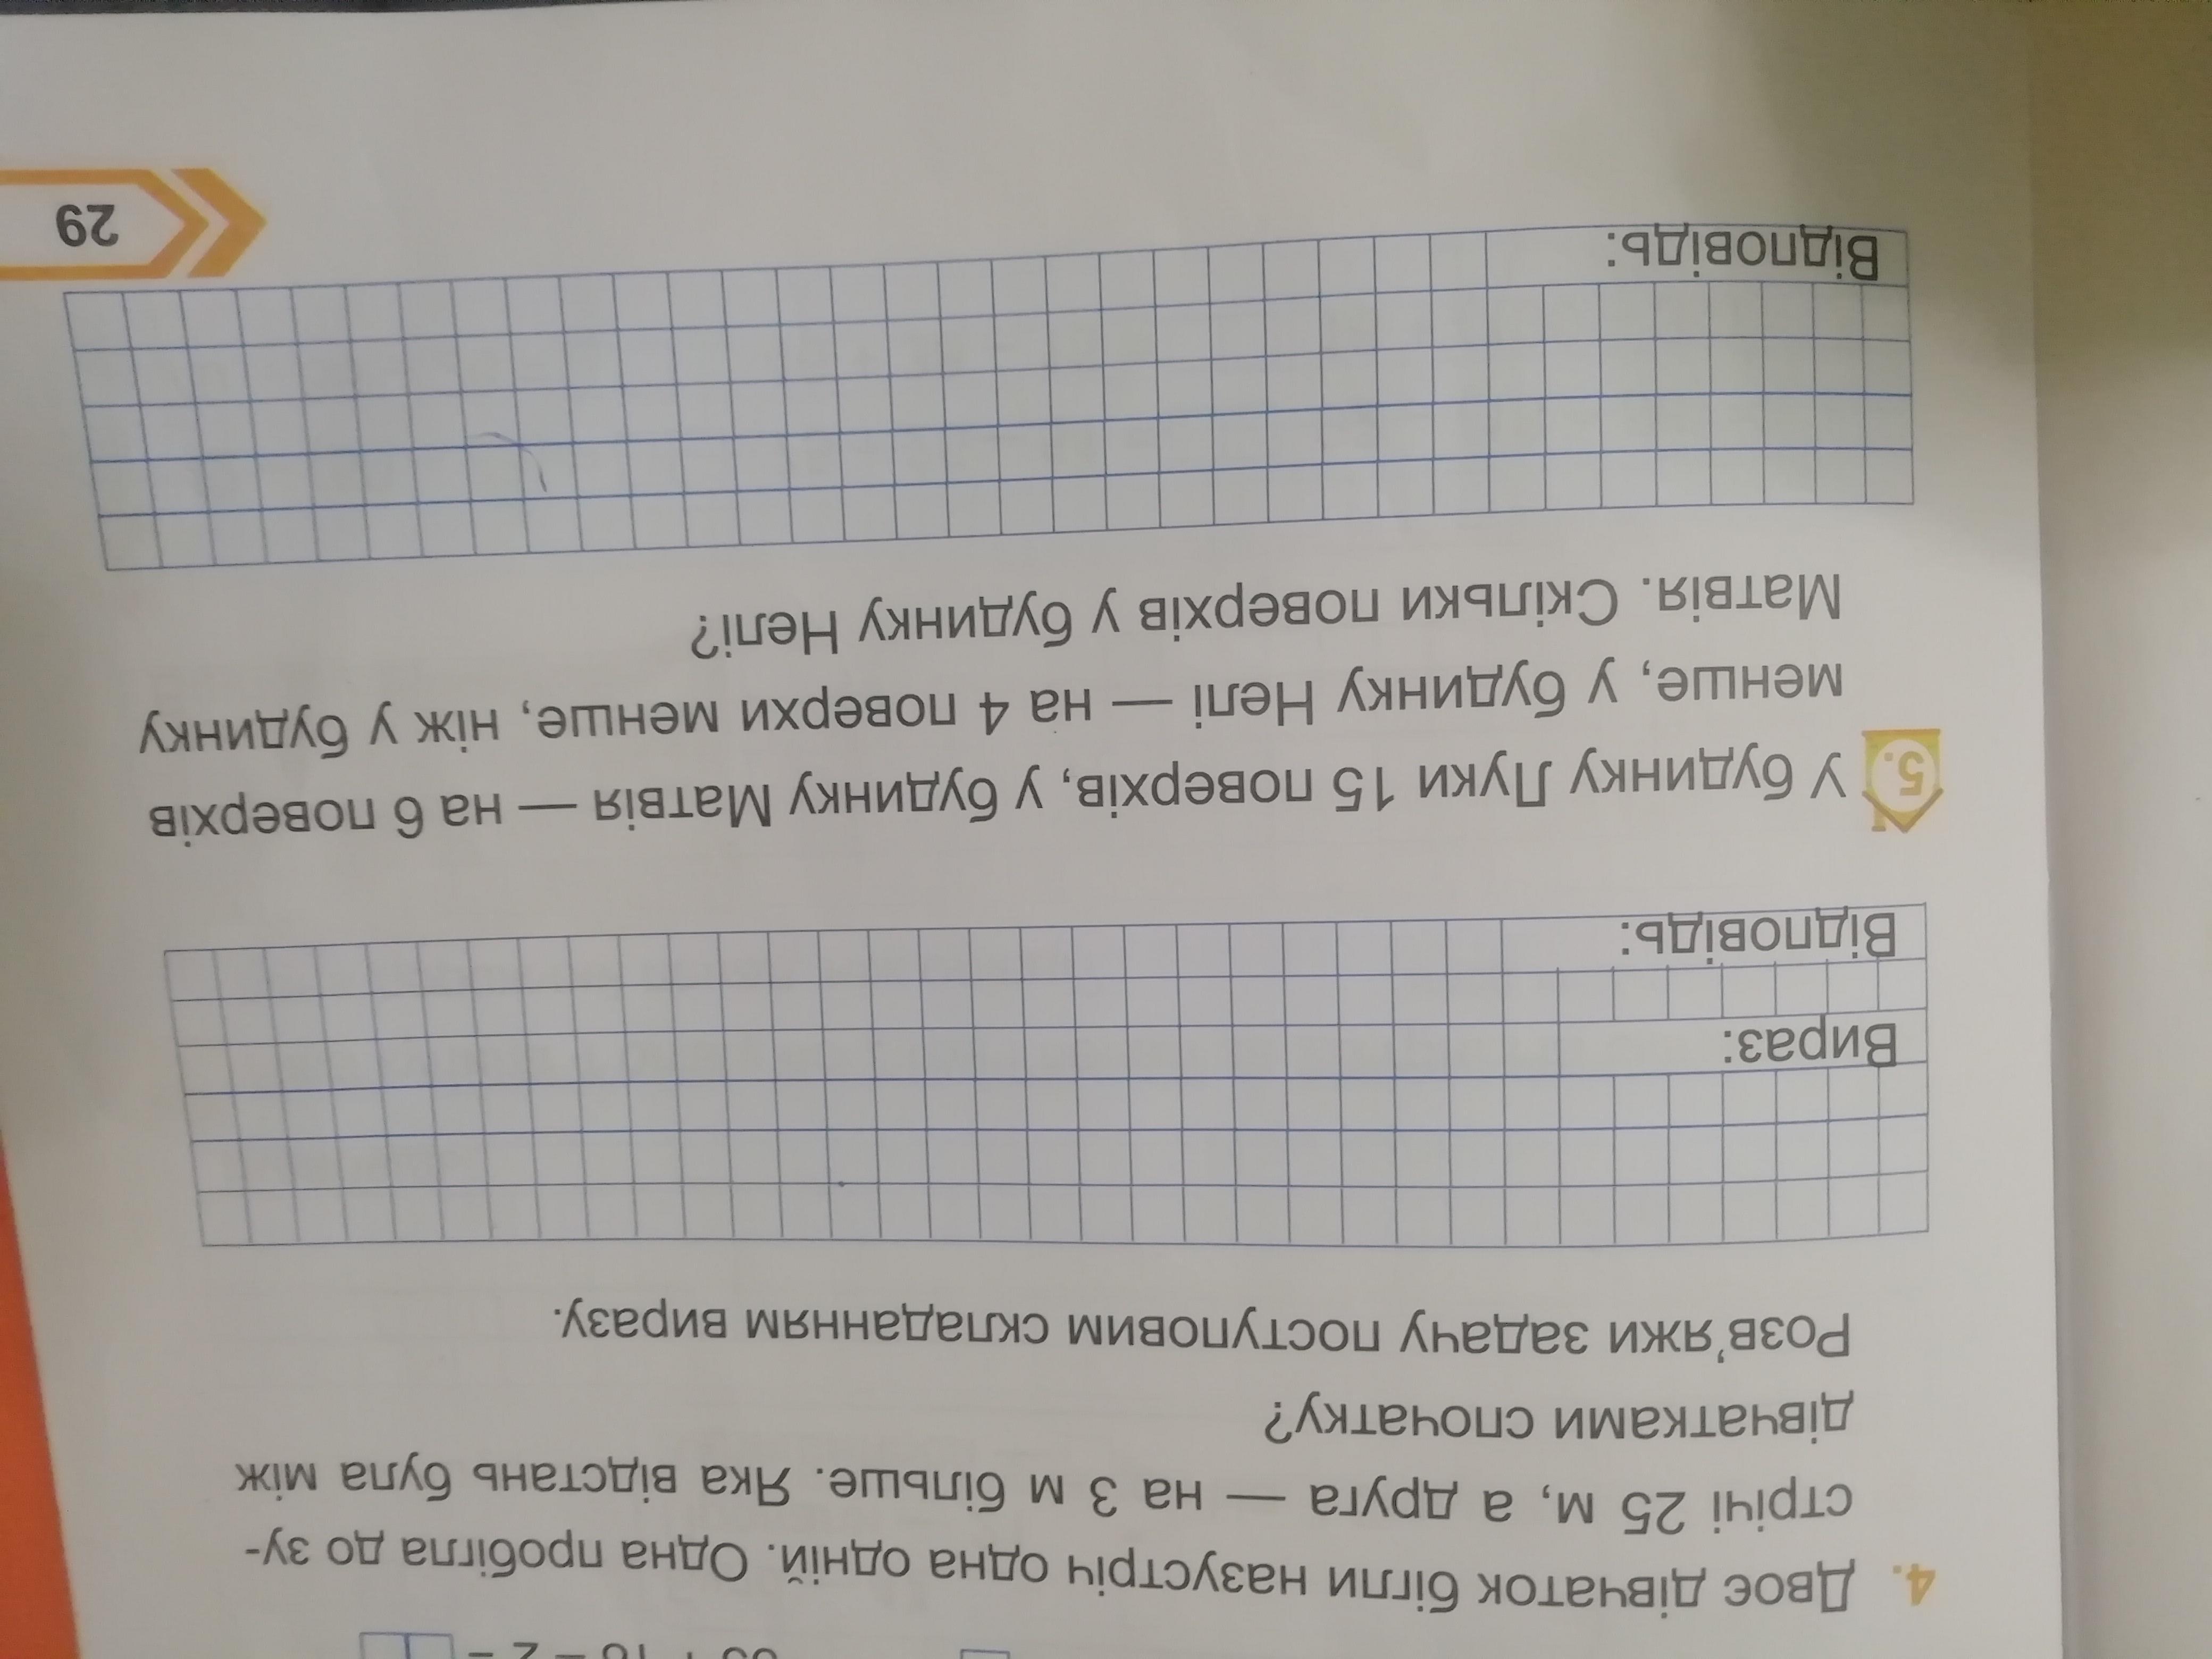 4. Двоє дівчаток бігли назустріч одна одній. Одна пробігла до зу-
стрічі 25 м, а друга — на 3 м більше. Яка відстань була між
дівчатками спочатку?
Розв'яжи задачу поступовим складанням виразу.
Вираз:
Відповідь:
5. У будинку Луки 15 поверхів, у будинку Матвія — на 6 поверхів
менше, у будинку Нелі — на 4 поверхи менше, ніж у будинку
Матвія. Скільки поверхів у будинку Нелі?
Відповідь:
29